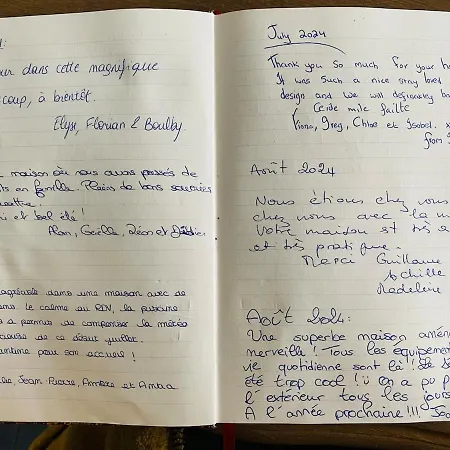 our dans cette magnifique
coup, à bientôt.
Elyse, Florian & Boulby.
maison où nous avons passés de
ts en famille. Pleins de bons souvenirs
ettre.
i et bel été!
Alan, Gaëlle, Léon et
agréable dans une maison avec de
le calme au RDV, la piscine
a permis de compenser la météo
de ce début juillet.
pour son accueil!
Jean Pierre, et
July 2024
Thank you so much for your ho
It was such a nice stay loved
design and we will definitely b
Ceide mile failte
Fiona, Greg, Chloe et Isobel. x
from S
Août 2024
Nous étions chez vous
chez nous avec la m
Votre maison est très a
et très pratique.
Merci Guillaume
Achille
Madeleine
Août 2024:
Une superbe maison amén
merveille! Tous les équipemen
vie quotidienne sont là! Le
été trop cool! ü on a pu p
l'extérieur tous les jours
A l'année prochaine!!!